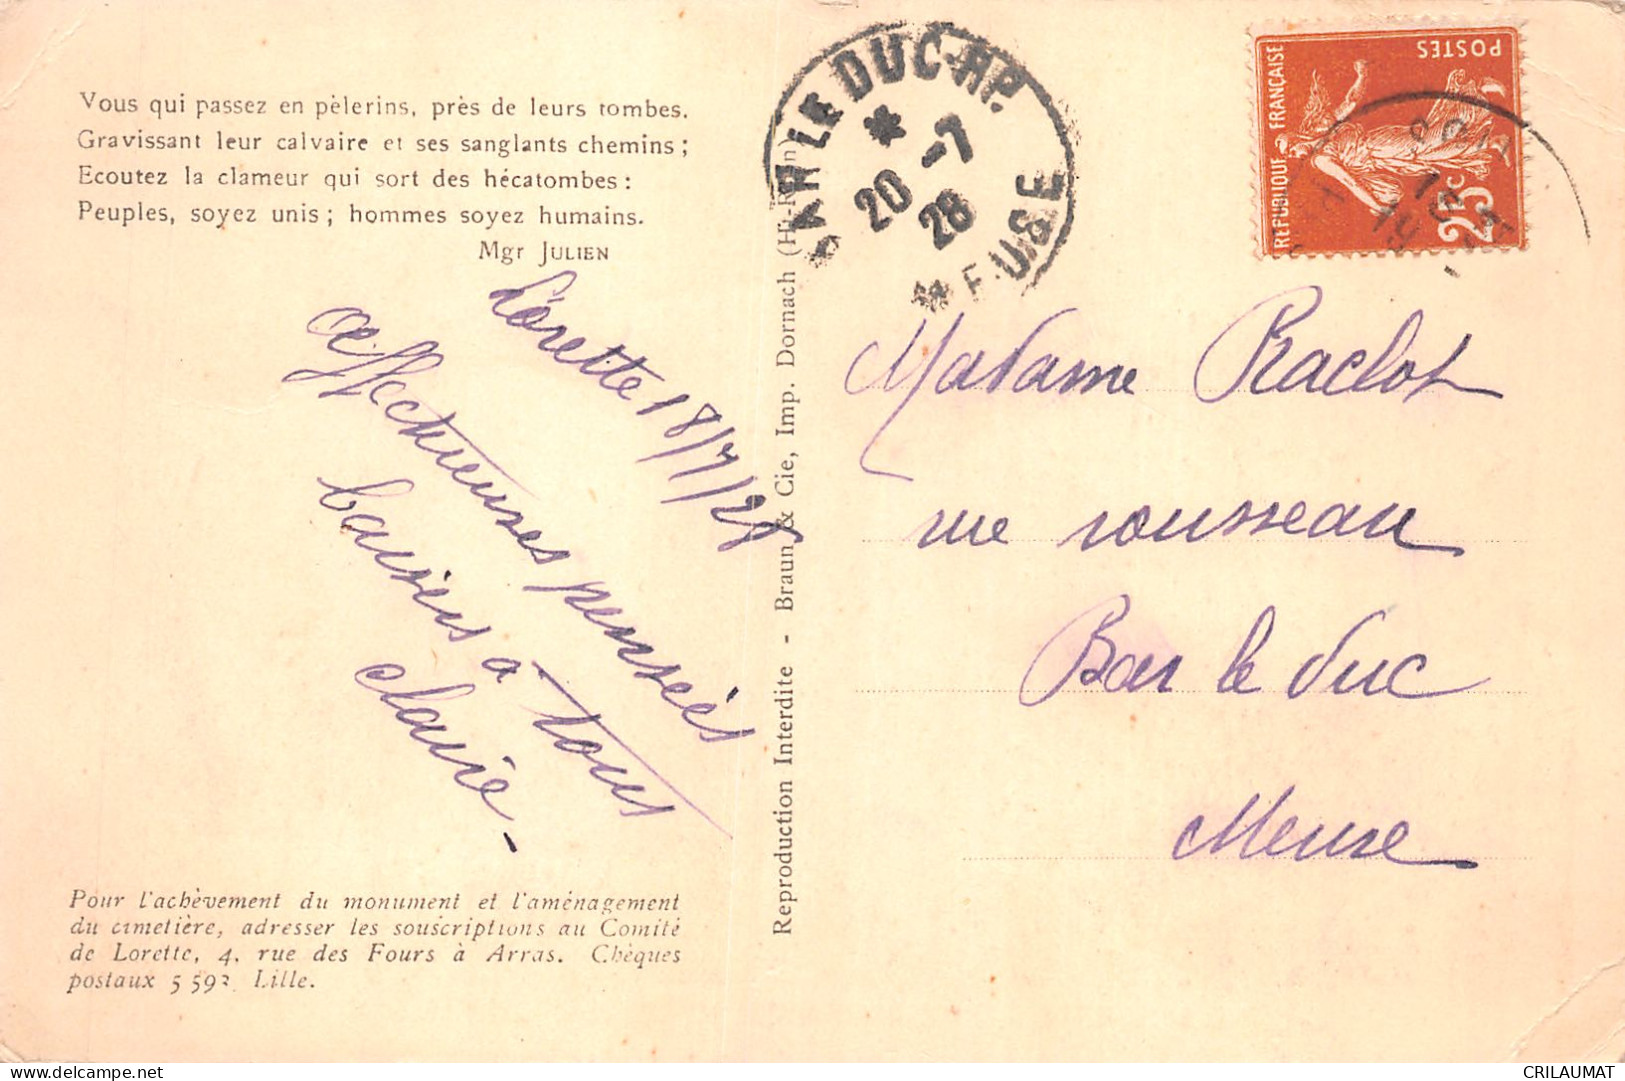 Vous qui passez en pèlerins, près de leurs tombes,
Gravissant leur calvaire et ses sanglants chemins ;
Ecoutez la clameur qui sort des hécatombes :
Peuples, soyez unis ; hommes soyez humains.
Mgr JULIEN
Lorette 18/7/28
affectueuses pensées
baisers à tous
claire -
Pour l'achèvement du monument et l'aménagement
du cimetière, adresser les souscriptions au Comité
de Lorette, 4, rue des Fours à Arras. Chèques
postaux 5 592 Lille.
Reproduction Interdite - Braun & Cie, Imp. Dornach (Ht-Rhin)
BAR LE DUC-RP.
20 -7
28
MEUSE
POSTES
REPUBLIQUE FRANÇAISE
25c
Madame Raclot
rue rousseau
Bar le duc
Meuse
CRILAUMAT